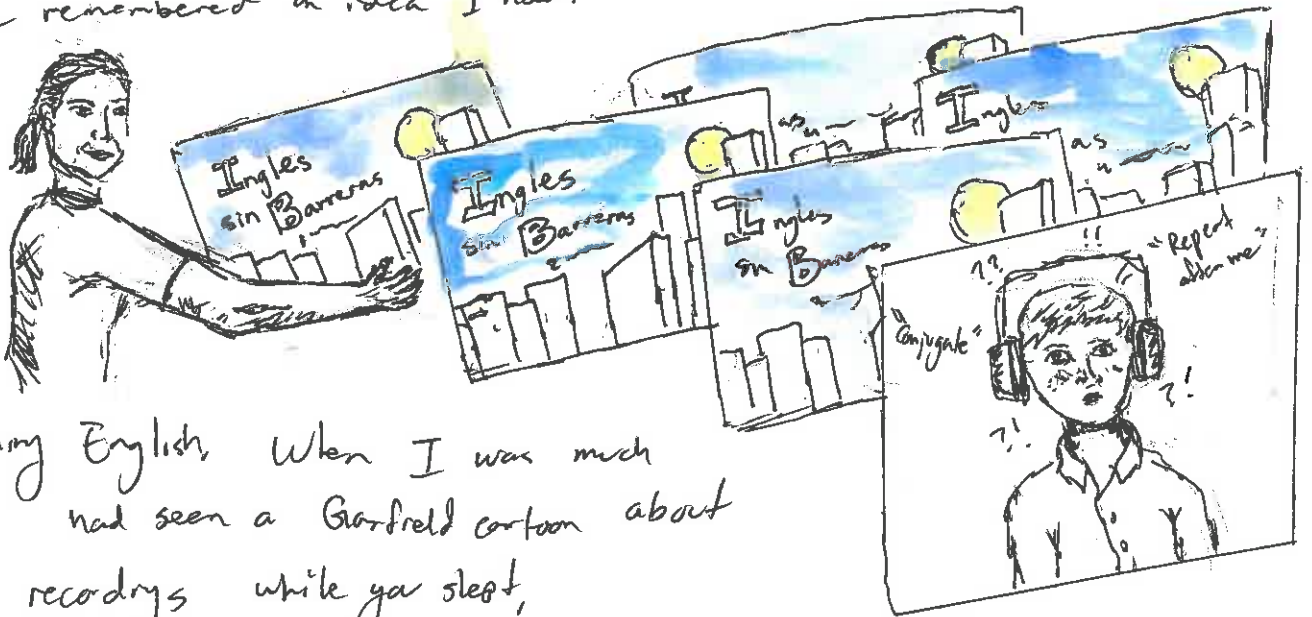 remembered an idea I had.
Ingles
sin Barreras
Ingles
sin Barreras
Ingles
sin Barreras
I
as
Ingles
as
!!
??
"Repeat
after me"
"Conjugate"
?!
?!
English. When I was much
had seen a Garfield cartoon about
recordings while you slept,